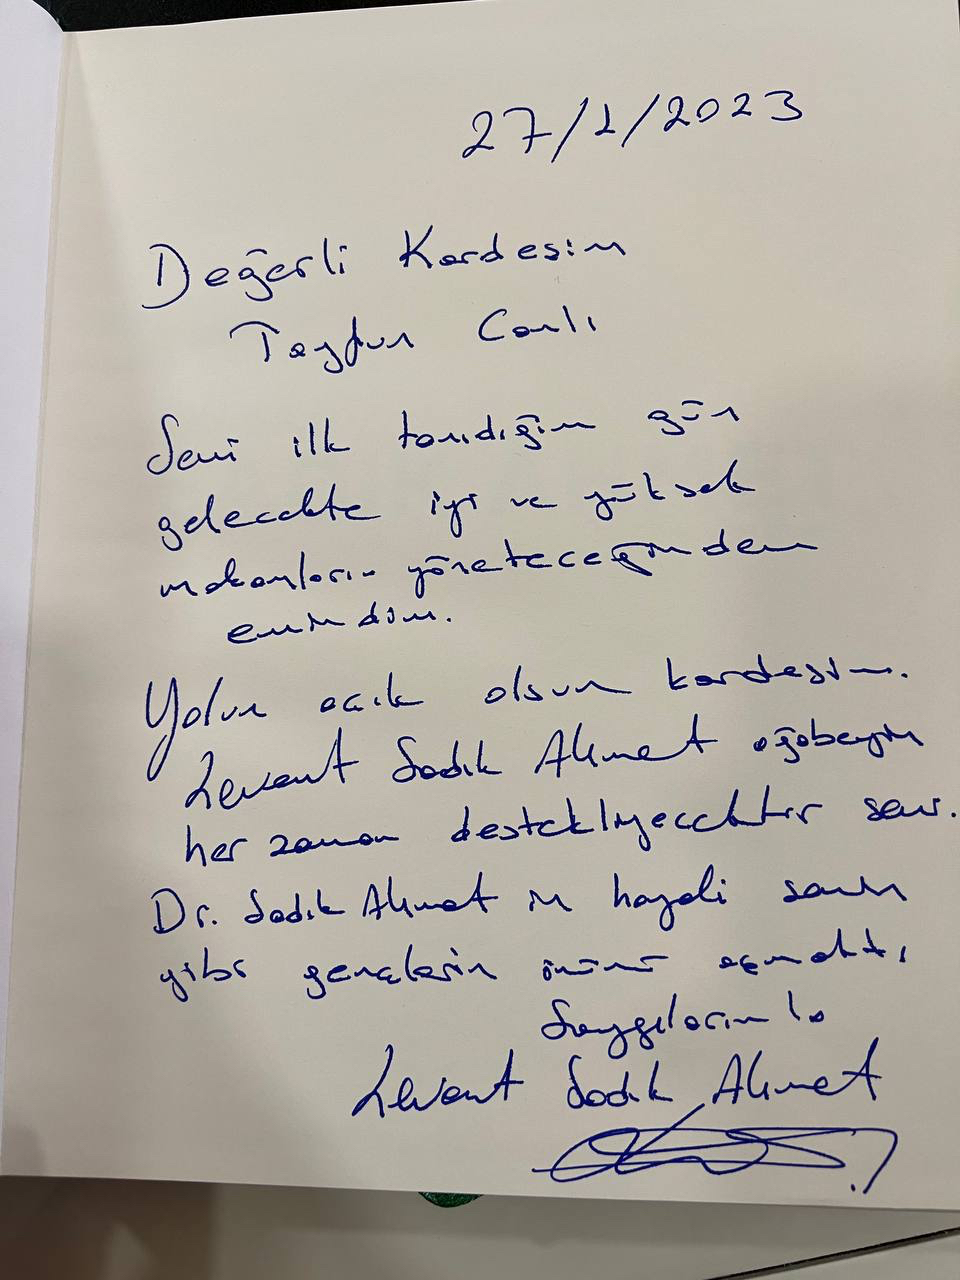 27/1/2023
Değerli Kardeşim
Tayfun Canlı
Seni ilk tanıdığım gün
gelecekte iyi ve yüksek
makamların yöneteceğinden
emindim.
Yolun açık olsun kardeşim.
Levent Sadık Ahmet ağabeyin
her zaman destekliyecektir seni.
Dr. Sadık Ahmet in hayali senin
gibi gençlerin önünü açmaktı,
Saygılarımla
Levent Sadık Ahmet